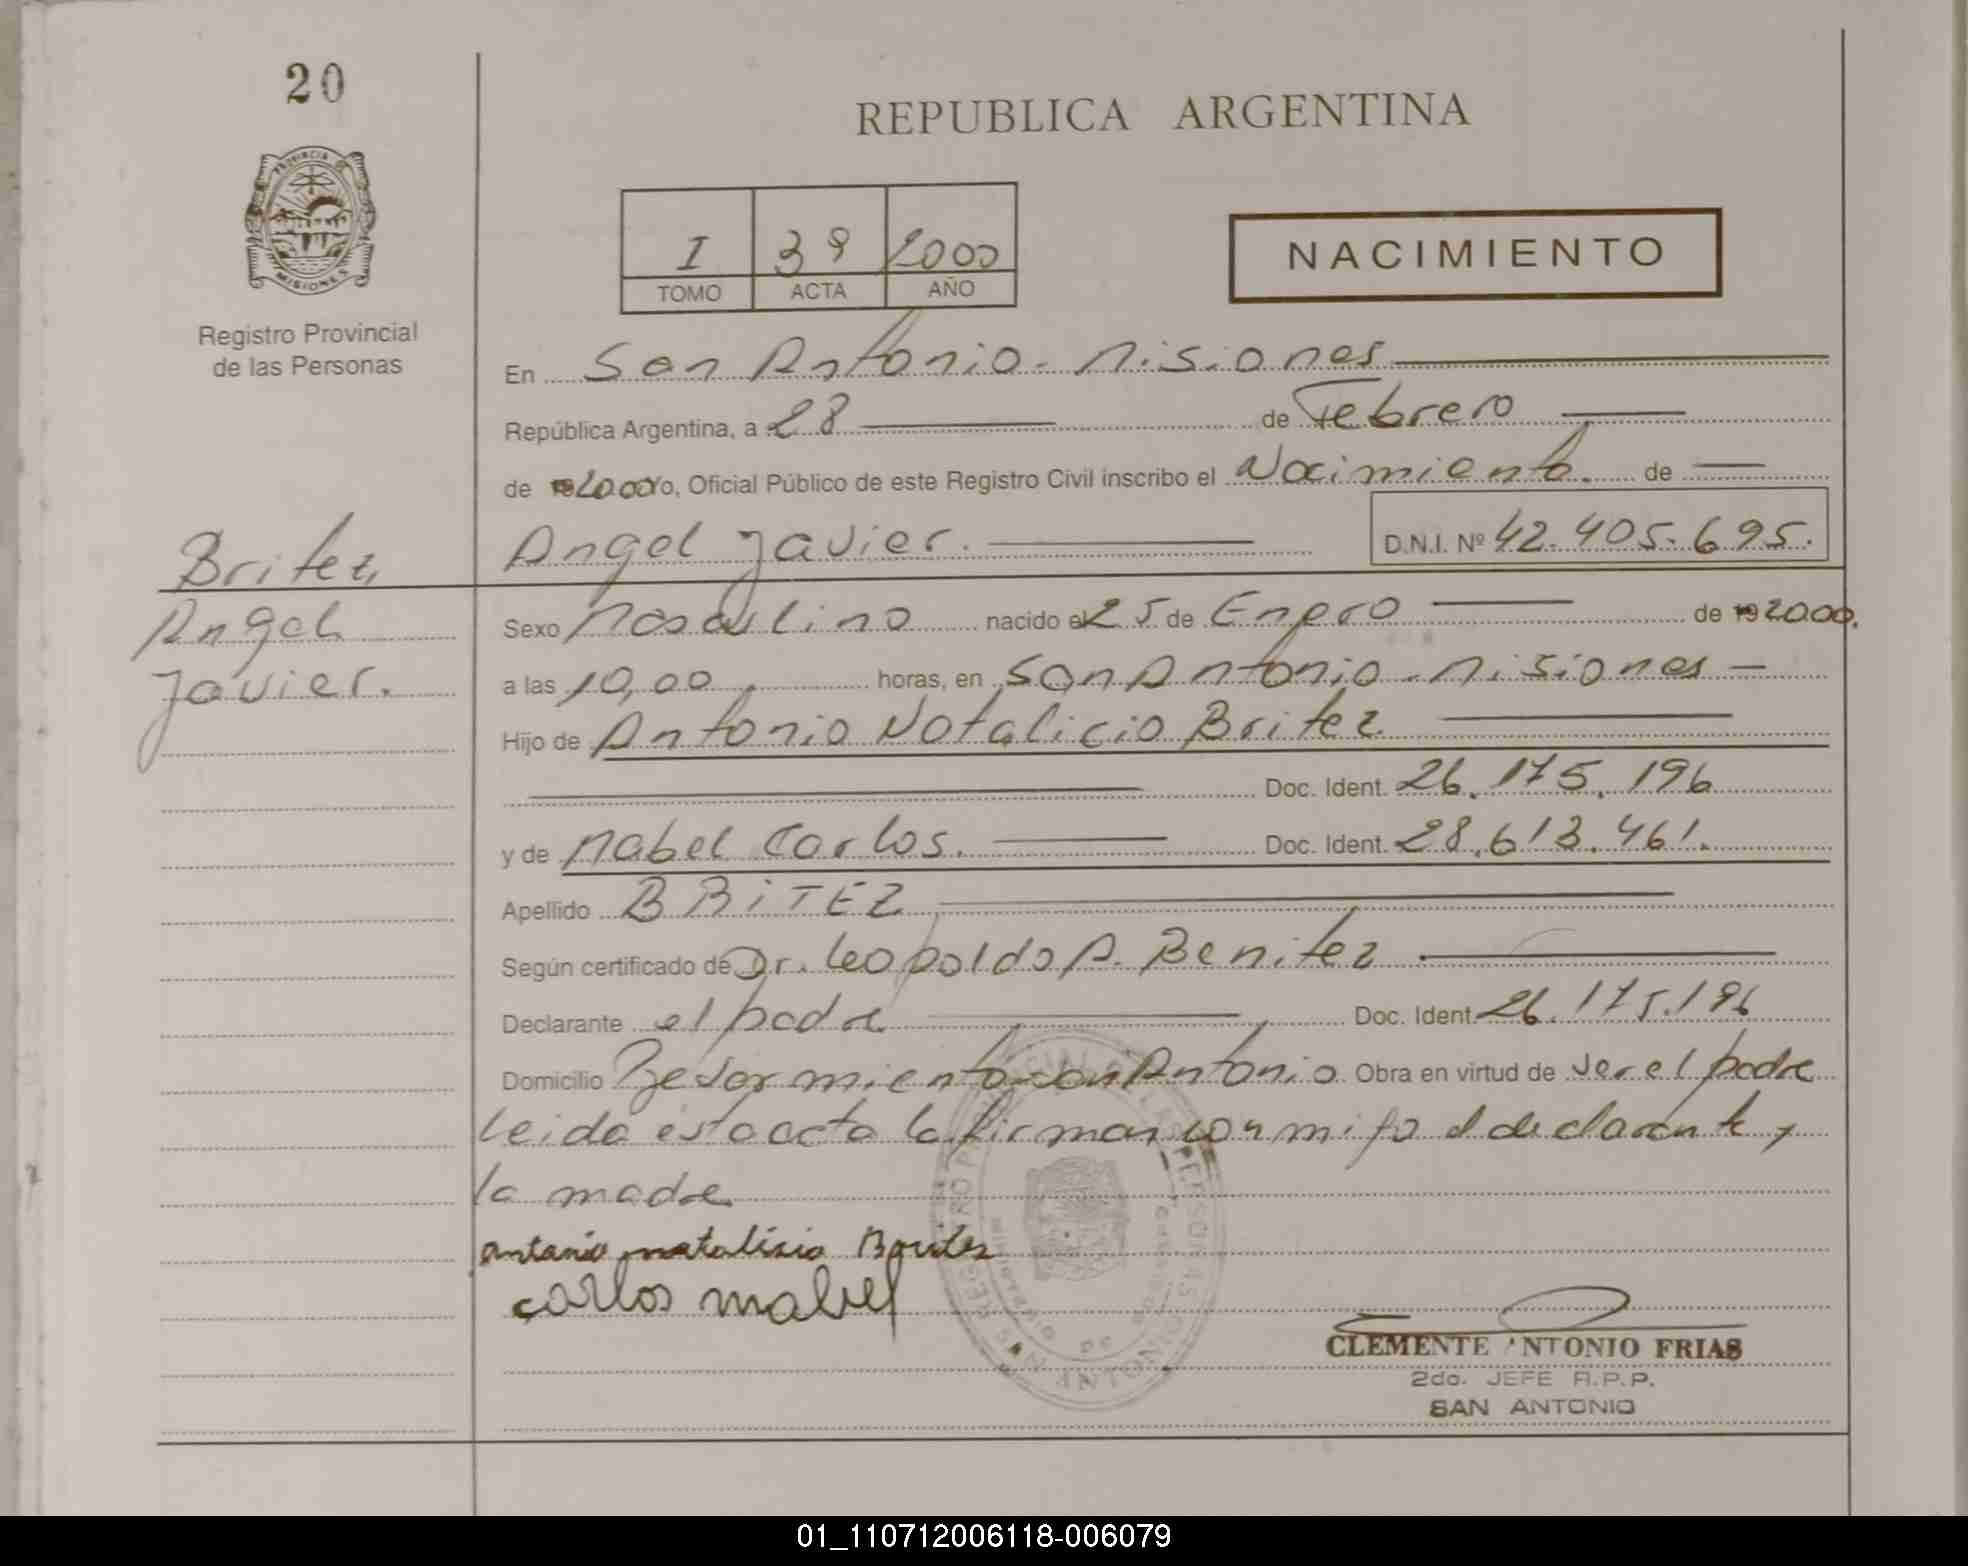 20
REPUBLICA ARGENTINA
PROVINCIA DE
MISIONES
Registro Provincial
de las Personas
I 39 2000
TOMO ACTA AÑO
NACIMIENTO
En San Antonio - Misiones
República Argentina, a 28 de Febrero
de 2000 yo, Oficial Público de este Registro Civil inscribo el Nacimiento. de
Angel Javier. D.N.I. Nº 42.405.695.
Britez,
Angel
Javier.
Sexo Masculino nacido el 25 de Enero de 19 2000.
a las 10,00 horas, en San Antonio - Misiones
Hijo de Antonio Natalicio Britez
Doc. Ident. 26.175.196
y de Mabel Carlos. Doc. Ident. 28.613.461.
Apellido BRiTEZ
Según certificado de Dr. Leopoldo A. Benitez
Declarante el padre Doc. Ident. 26.175.196
Domicilio San Antonio Obra en virtud de ser el padre
Leida esta acta la firman conmigo el declarante y
la madre
antonio natalisio Britez
carlos mabel
CLEMENTE ANTONIO FRIAS
2do. JEFE R.P.P.
SAN ANTONIO
01_110712006118-006079